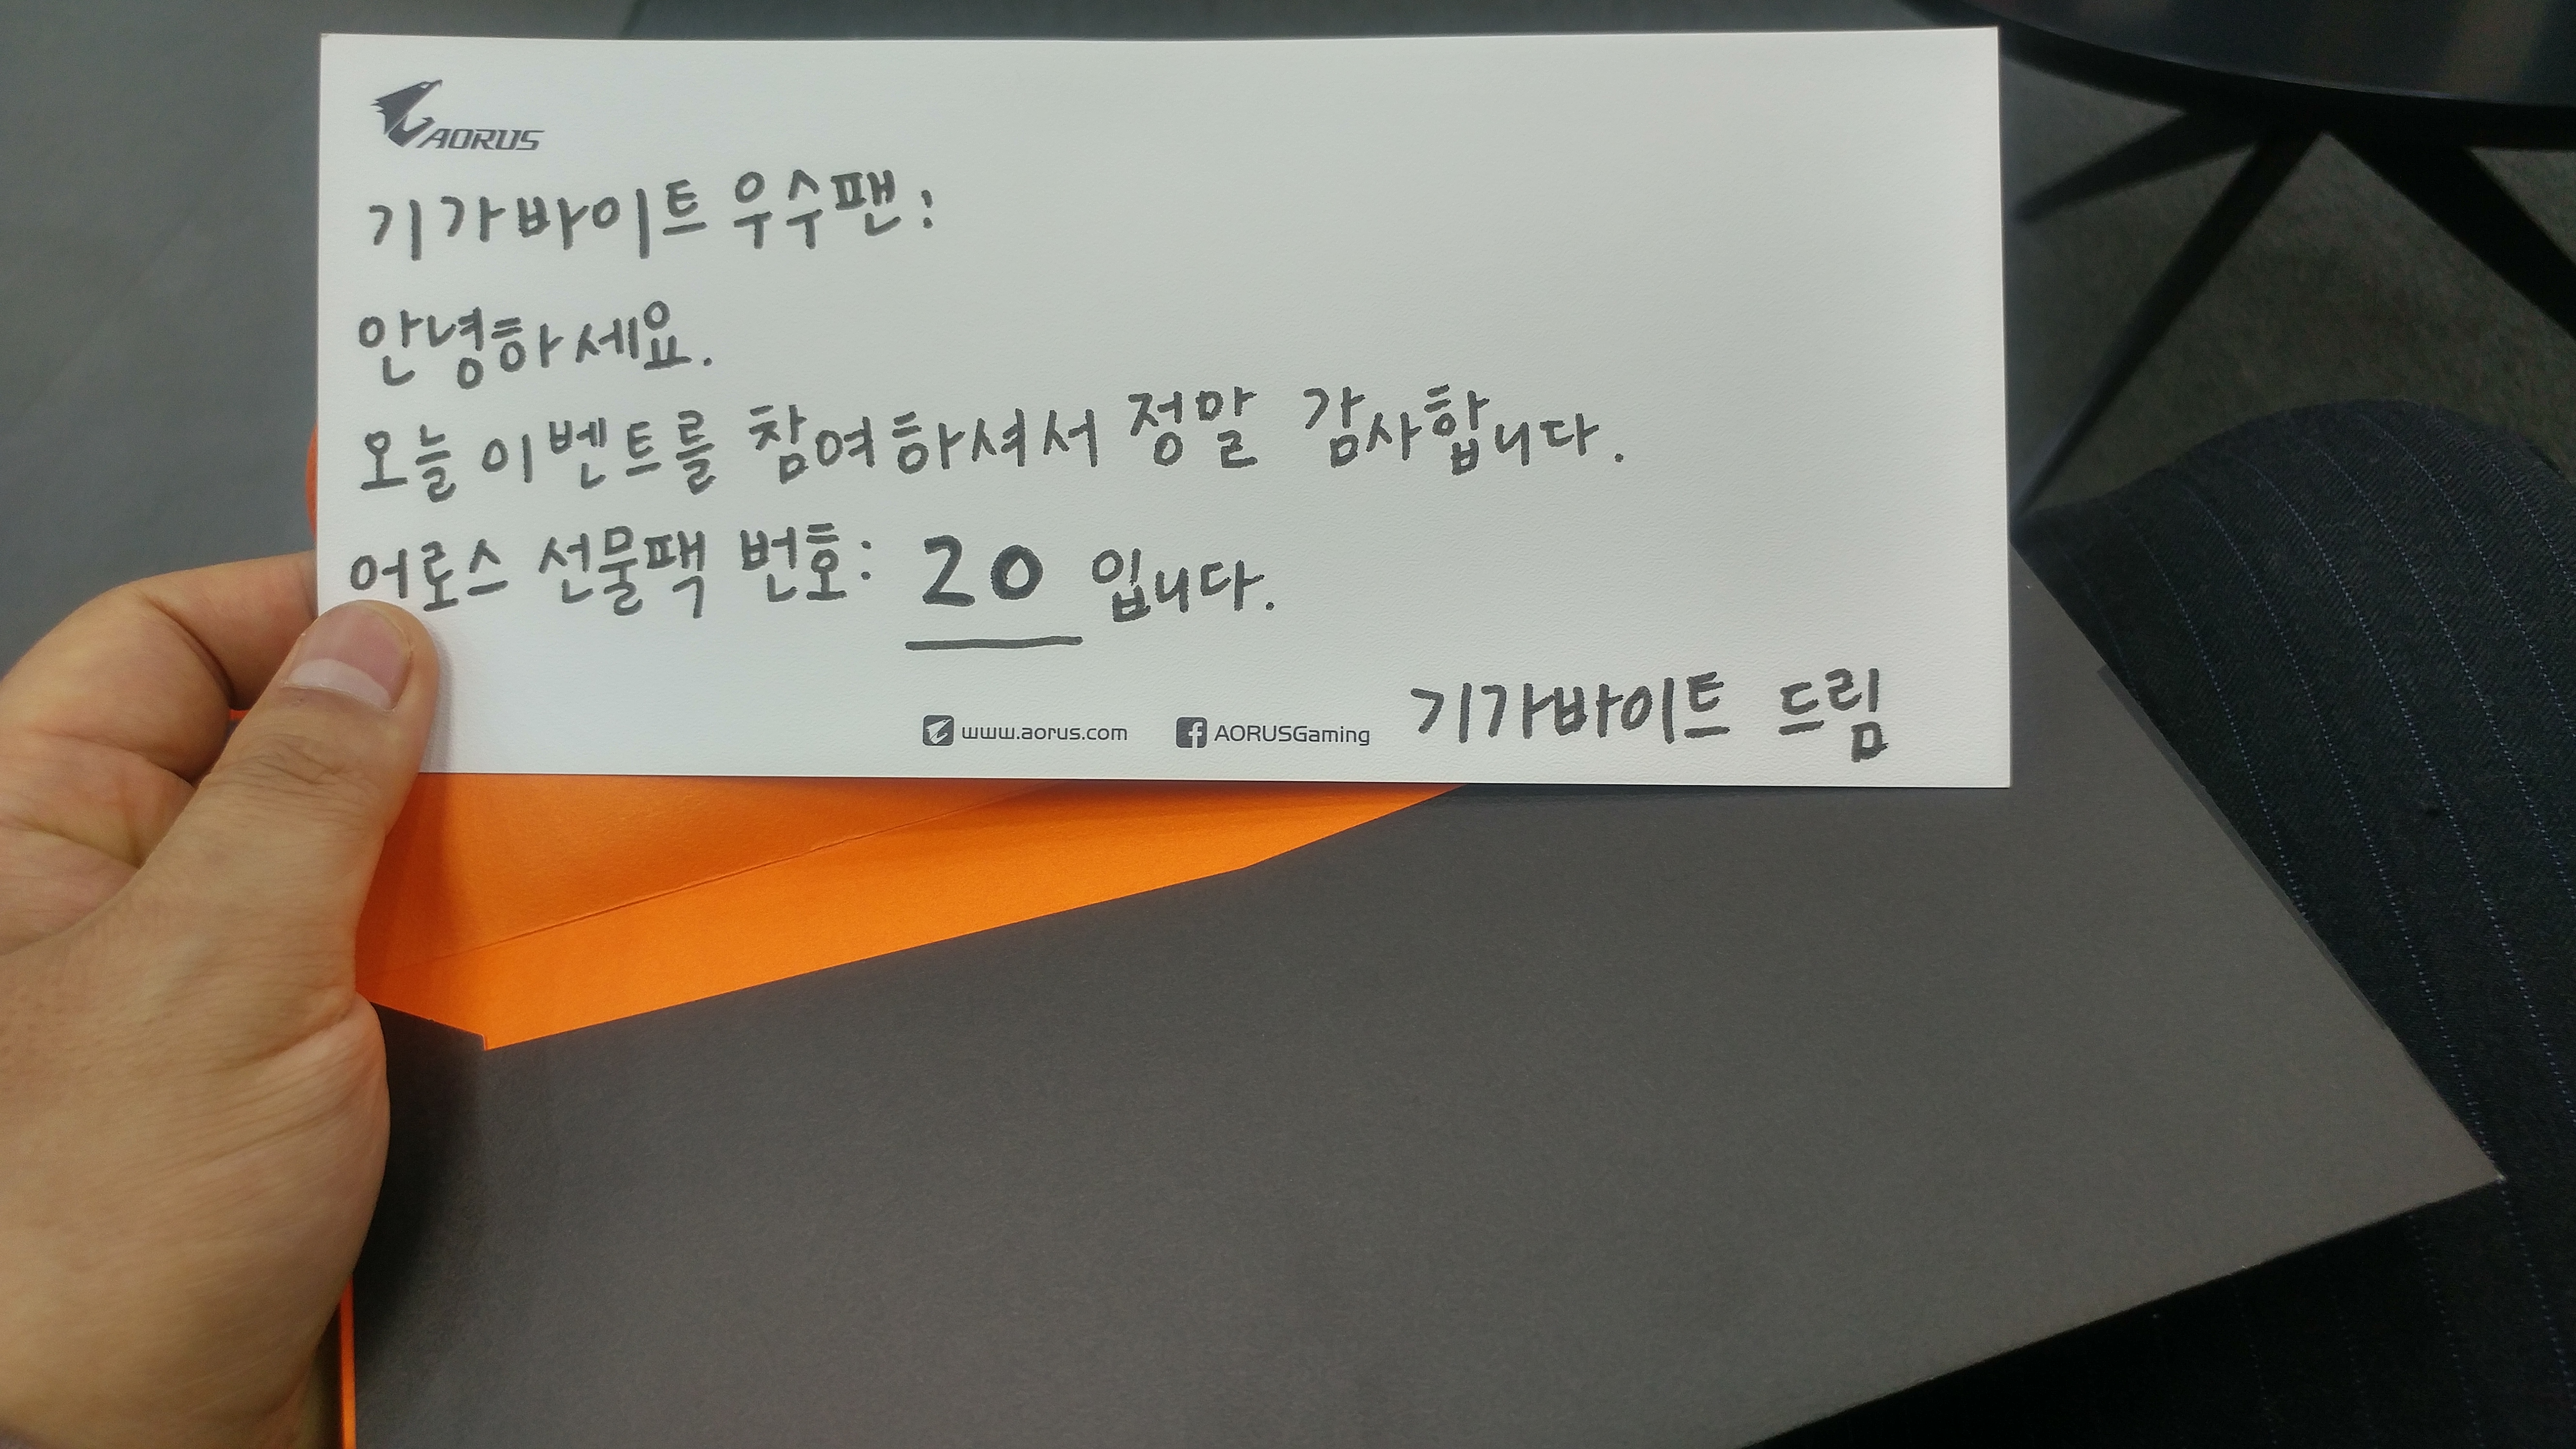 AORUS
기가바이트 우수팬:
안녕하세요.
오늘 이벤트를 참여하셔서 정말 감사합니다.
어로스 선물팩 번호: 20 입니다.
기가바이트 드림
www.aorus.com AORUSGaming